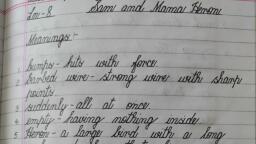 Ln-8 Sam and Mama Heron
Meanings:-
1. bumps - hits with force.
2. barbed wire - strong wire with sharp
points.
3. suddenly - all at once.
4. empty - having nothing inside.
5. Heron - a large bird with a long